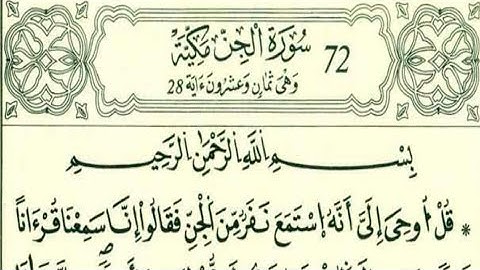 سُورَةُ الْجِنِّ مَكِّيَّةٌ 72
وَهْيَ ثَمَانٍ وَعِشْرُونَ ءَايَة 28
بِسْمِ اللَّهِ الرَّحْمَٰنِ الرَّحِيمِ
* قُلْ ا۟وحِيَ إِلَيَّ أَنَّهُ اُ۪سْتَمَعَ نَفَرٌ مِّنَ الْجِنِّ فَقَالُوا إِنَّا سَمِعْنَا قُرْءَاناً